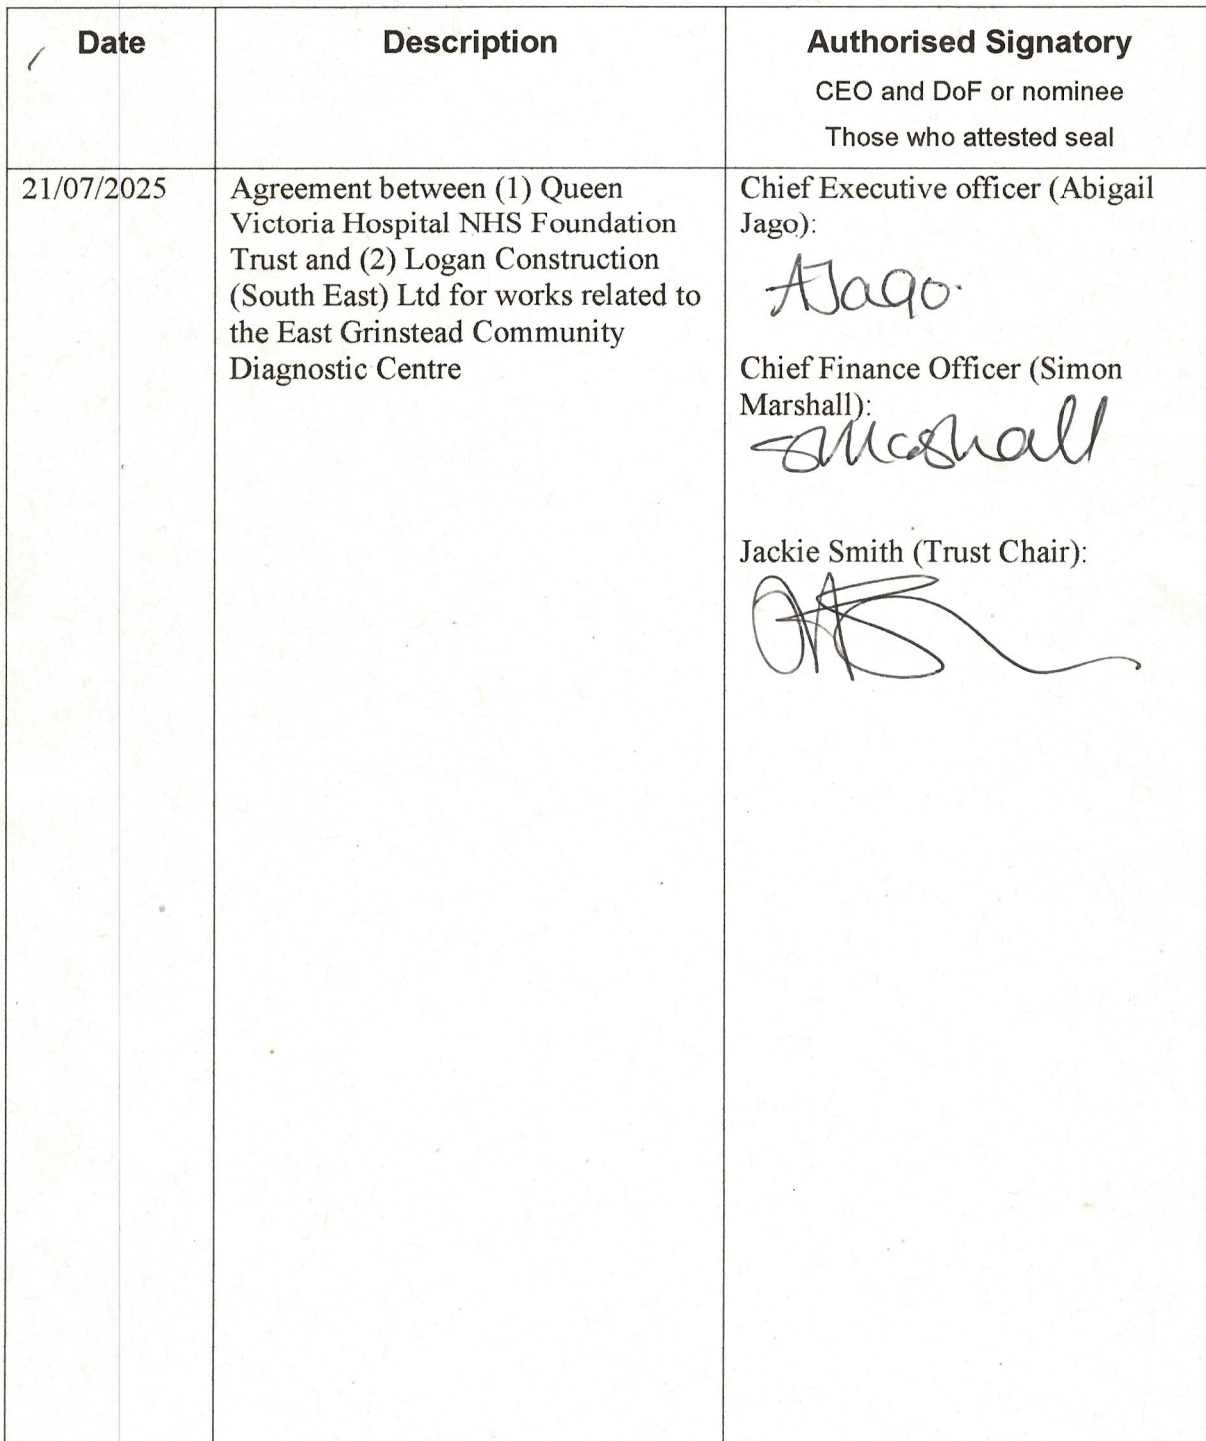 Date
Description
Authorised Signatory
CEO and DoF or nominee
Those who attested seal
21/07/2025
Agreement between (1) Queen
Victoria Hospital NHS Foundation
Trust and (2) Logan Construction
(South East) Ltd for works related to
the East Grinstead Community
Diagnostic Centre
Chief Executive officer (Abigail
Jago):
AJago.
Chief Finance Officer (Simon
Marshall):
SMarshall
Jackie Smith (Trust Chair):